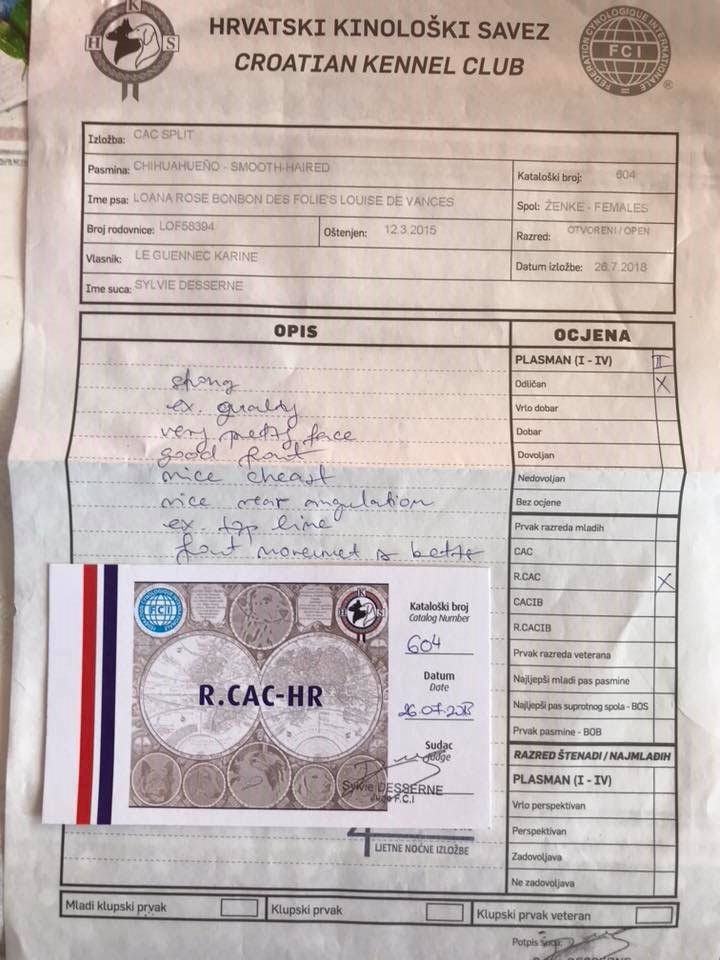 HRVATSKI KINOLOŠKI SAVEZ
CROATIAN KENNEL CLUB
H K S
FEDERATION CYNOLOGIQUE INTERNATIONALE
FCI
®
Izložba: CAC SPLIT
Pasmina: CHIHUAHUEÑO - SMOOTH-HAIRED
Kataloški broj: 604
Ime psa: LOANA ROSE BONBON DES FOLIE'S LOUISE DE VANCES
Spol: ŽENKE - FEMALES
Broj rodovnice: LOF58394
Oštenjen: 12.3.2015
Razred: OTVORENI / OPEN
Vlasnik: LE GUENNEC KARINE
Datum izložbe: 26.7.2018
Ime suca: SYLVIE DESSERNE
OPIS
strong
ex. quality
very pretty face
good front
nice cheast
nice rear angulation
ex. top line
OCJENA
PLASMAN (I - IV) II
Odličan X
Vrlo dobar
Dobar
Dovoljan
Nedovoljan
Bez ocjene
Prvak razreda mladih
CAC
R.CAC X
CACIB
R.CACIB
Prvak razreda veterana
Najljepši mladi pas pasmine
Najljepši pas suprotnog spola - BOS
Prvak pasmine - BOB
RAZRED ŠTENADI / NAJMLAĐIH
PLASMAN (I - IV)
Vrlo perspektivan
Perspektivan
Zadovoljava
Ne zadovoljava
FCI
H K S
R.CAC-HR
Kataloški broj
Catalog Number
604
Datum
Date
26.07.2018
Sudac
Judge
Sylvie DESSERNE
Juge F.C.I
4
LJETNE NOĆNE IZLOŽBE
Mladi klupski prvak
Klupski prvak
Klupski prvak veteran
Potpis suca: